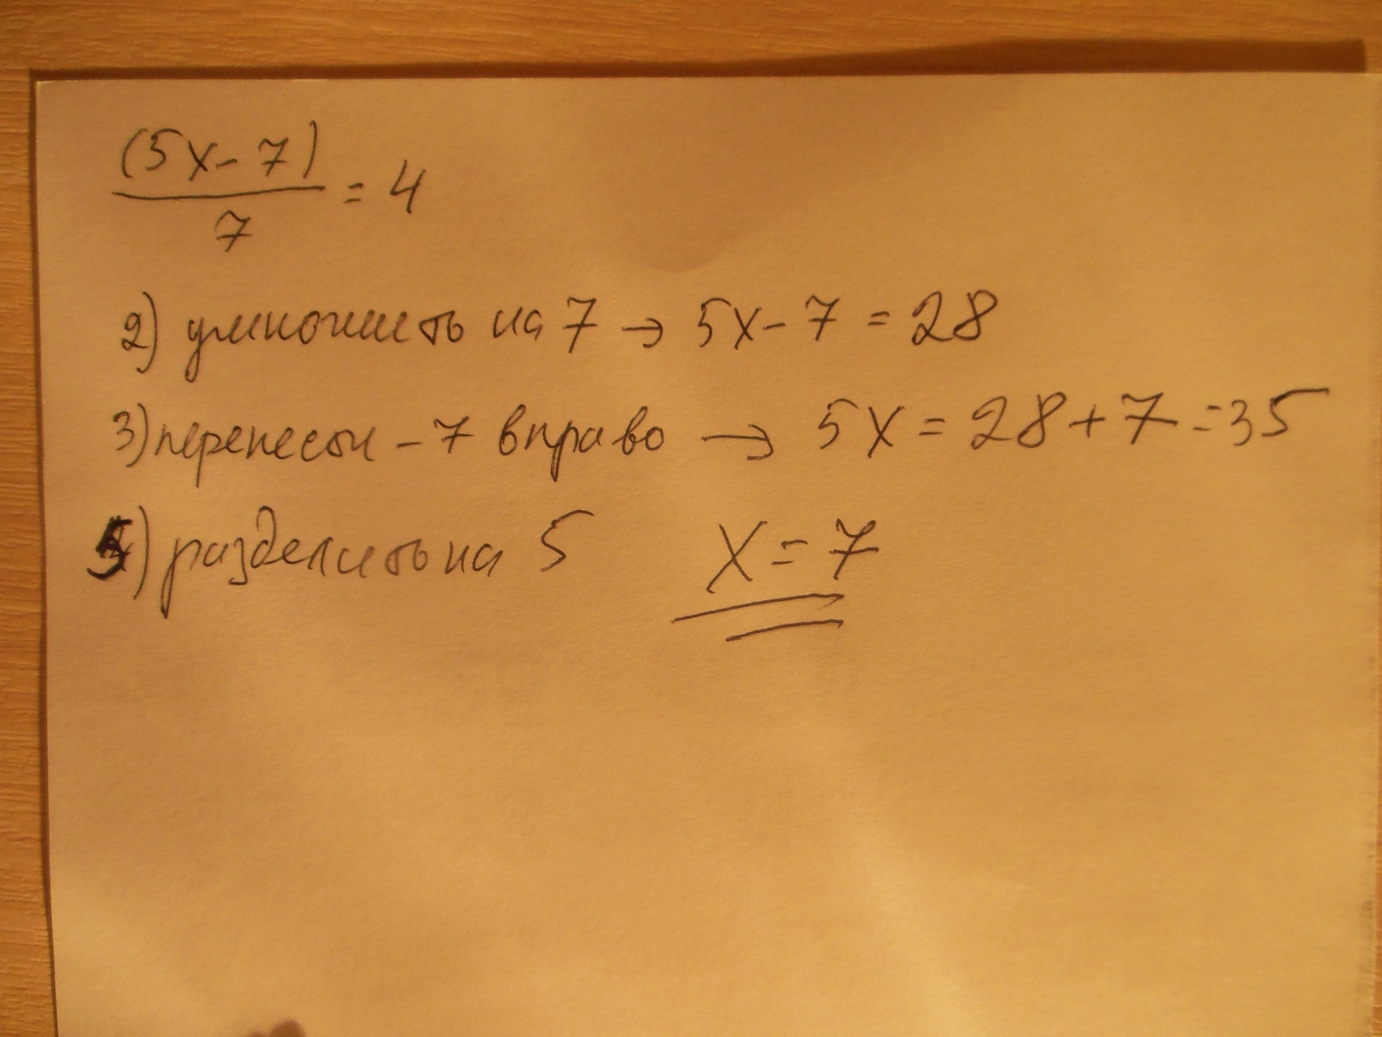 (5x-7)
7
= 4
2) умножить на 7 → 5x-7 = 28
3) перенесём -7 вправо → 5x = 28+7=35
5) разделить на 5 x=7